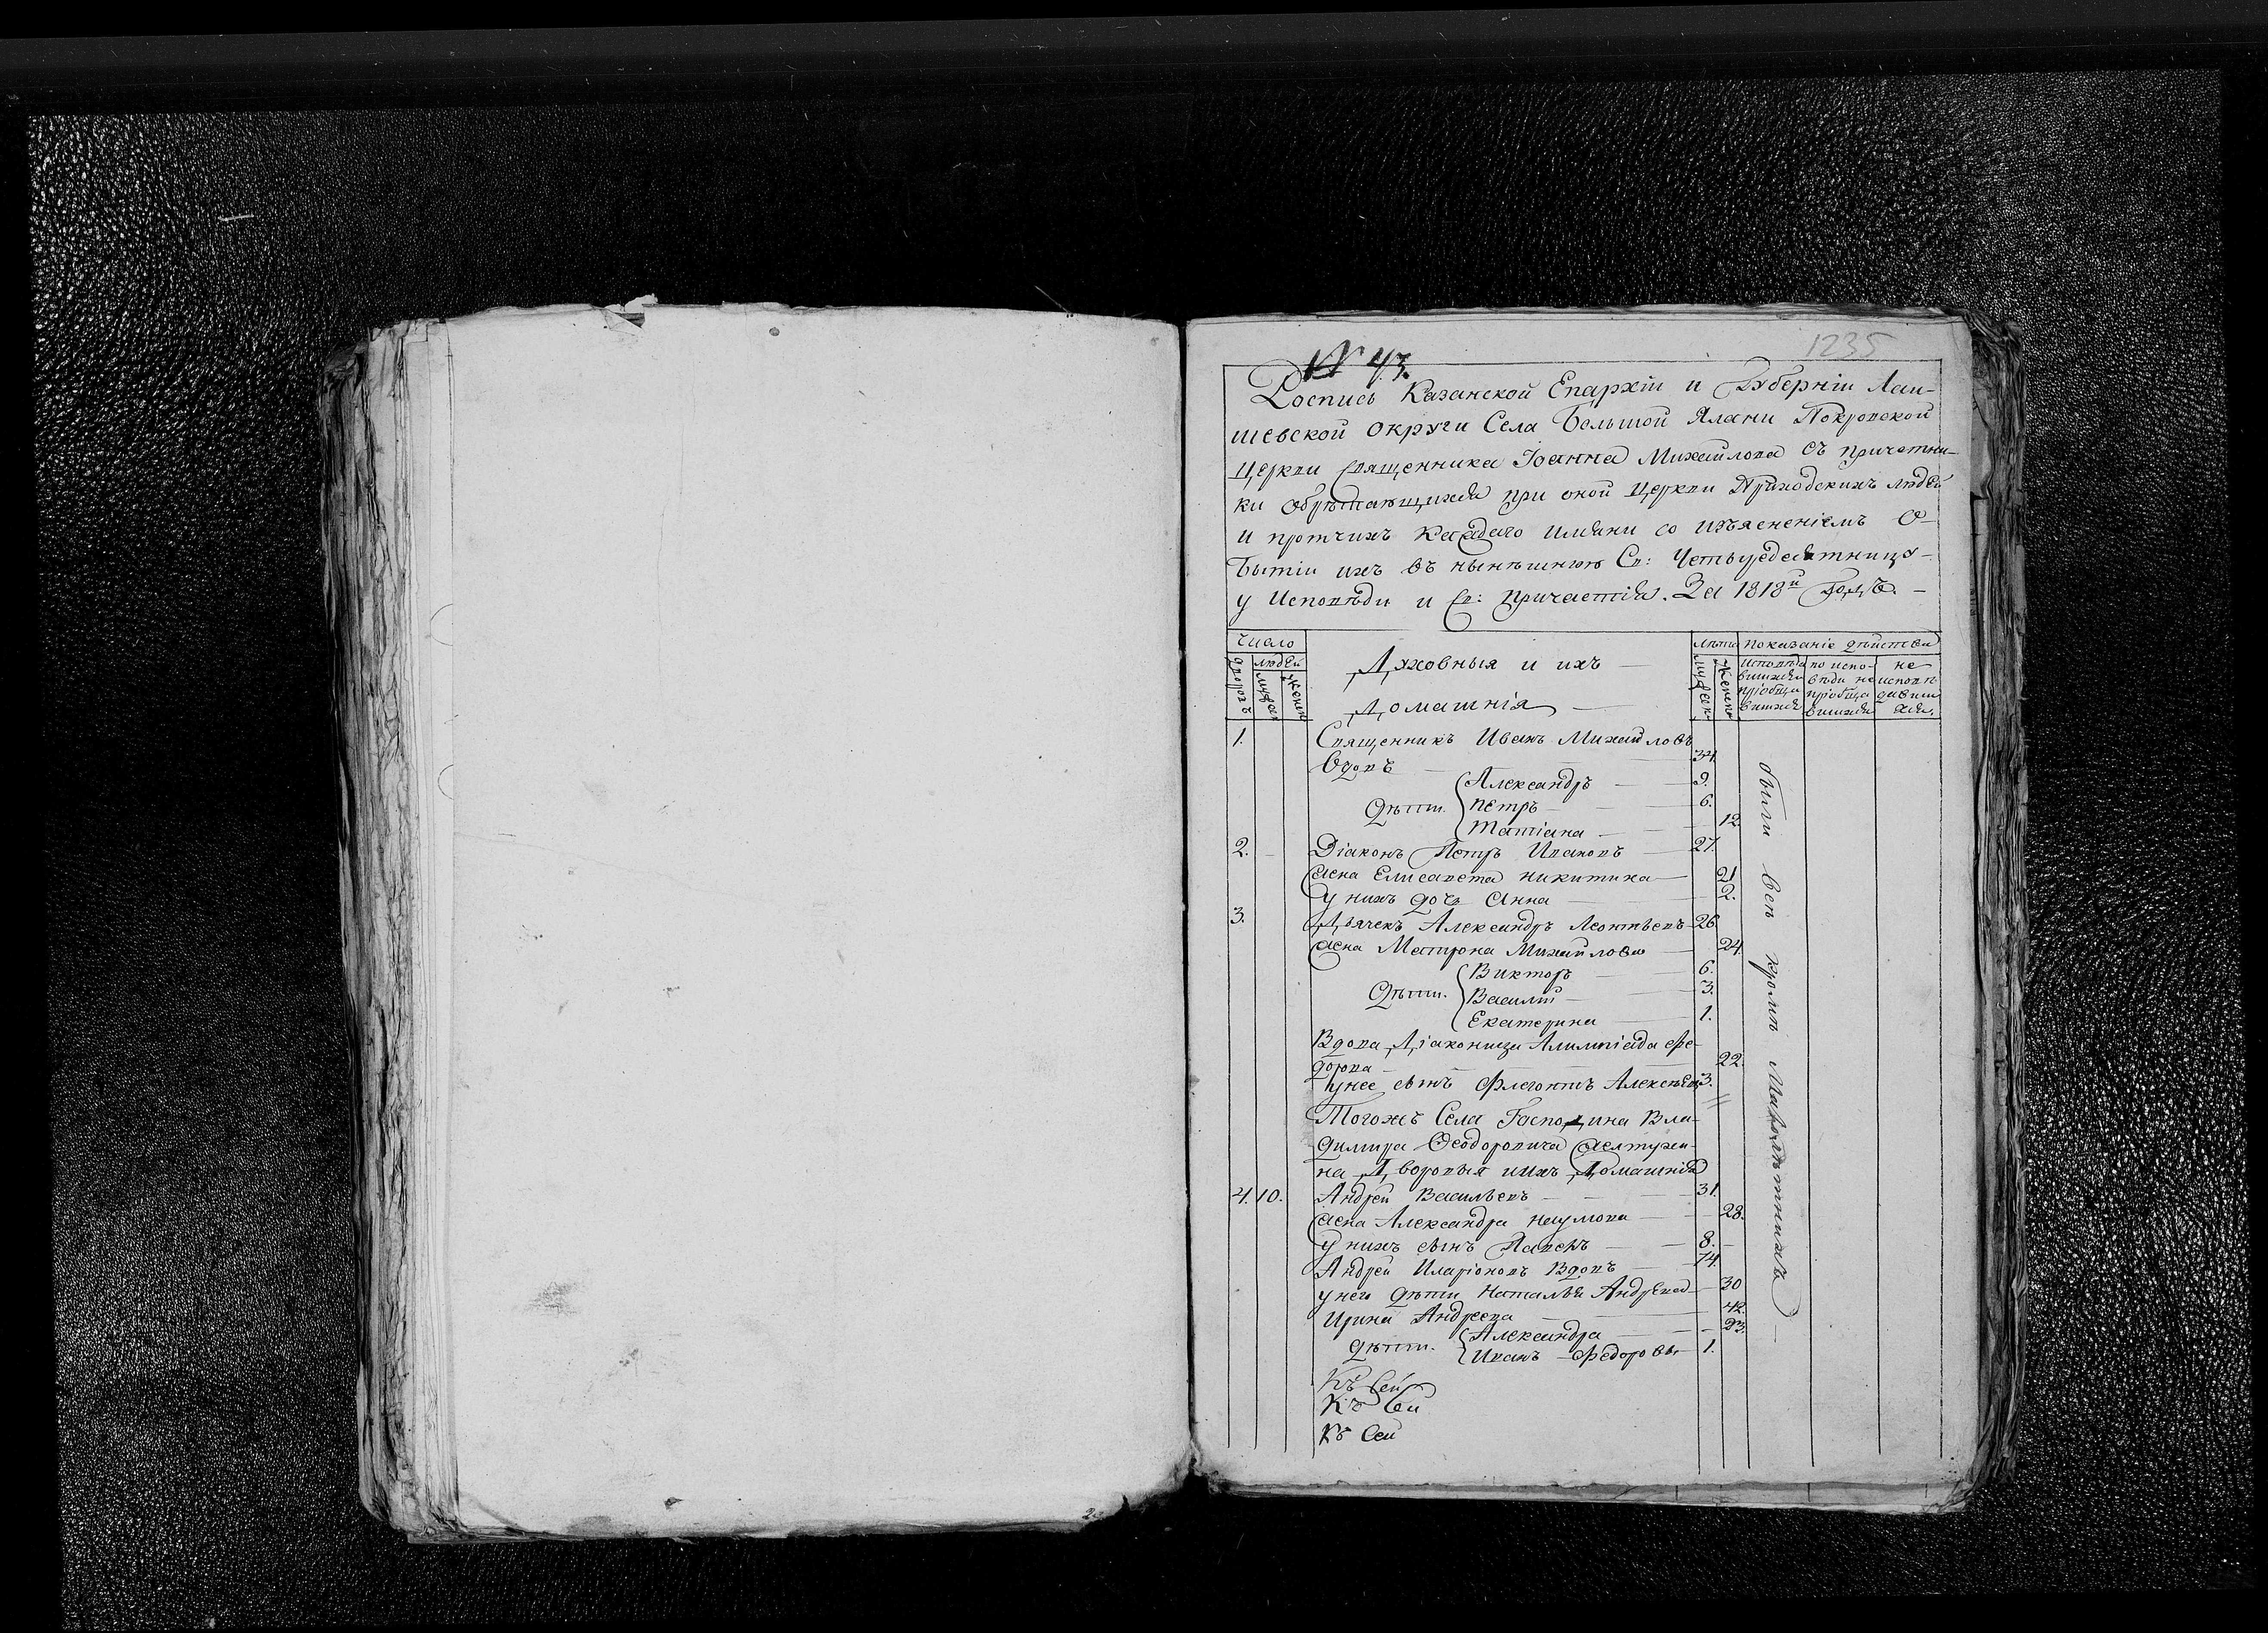 1235
№ 43.
Роспись Казанской Епархіи и Губерніи Лаи-
шевской округи Села Большой Елани Покровской
Церкви Священника Іоанна Михайлова съ причетни-
ки обрѣтающихся при оной Церкви Приходскихъ людей
и протчихъ каждаго имяни со изъясненіемъ о
бытіи ихъ въ нынѣшнюю Св: Четыредесятницу
у Исповѣди и Св: Причастія. За 1818й Годъ.
Число
лѣта
показаніе дѣйства
дворовъ
людей
мужеск
женск
Духовныя и ихъ
Домашнія
мужеск
женск
исповѣда
вшихся
пріобща
вшихся
по испо-
вѣди не
пріобща
вшихся
не
исповѣ
давши
хся.
1. Священникъ Иванъ Михайловъ
вдовъ 34.
Дѣти. Александръ 9.
Петръ 6.
Татіана 12.
2. Діаконъ Петръ Ивановъ 27.
жена Елисавета Никитина 21
у нихъ дочь Анна 2.
3. Дьячекъ Александръ Леонтьевъ 26.
жена Матрона Михайлова 24.
Дѣти. Викторъ 6.
Василій 3.
Екатерина 1.
Вдова Діаконица Алимпіада Фе-
дорова 22.
у нее сынъ Флегонтъ Алексѣевъ 3.
Тогожъ Села Господина Вла-
димира Феодоровича Желтухи-
на Дворовыя и ихъ Домашнія
4. 10. Андрей Васильевъ 31.
жена Александра Наумова 28.
у нихъ сынъ Павелъ 8.
Андрей Иларіоновъ Вдовъ 74.
у него дѣти Наталья Андреева 30
Ирина Андреева 42.
дѣти. Александра 23.
Иванъ Федоровы 1.
Къ Сей
Къ Сей
Къ Сей
были всѣ кромѣ Малолѣтнихъ